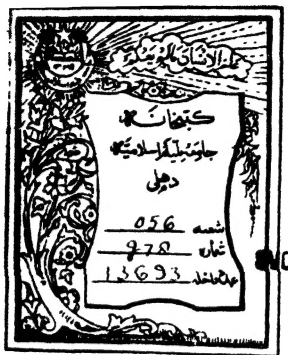 علم الانسان مالم يعلم
کتبخانہ
جامعہ ملیہ اسلامیہ
دہلی
شعبہ 056
شمارہ
داخلہ 13693